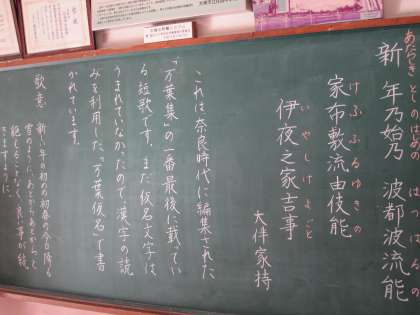 あたらしき としのはじめの はつはるの
新 年乃始乃 波都波流能
けふふるゆきの
家布敷流由伎能
いやしけよごと
伊夜之家吉事
大伴家持
これは奈良時代に編集された
「万葉集」の一番最後に載ってい
る短歌です。まだ仮名文字は
うまれていなかったので、漢字の読
みを利用した、「万葉仮名」で書
かれています。
歌意 新年の初めの初春の今日降る
雪のように、あとからあとからと
絶えることなく、良い事が続
きますように。